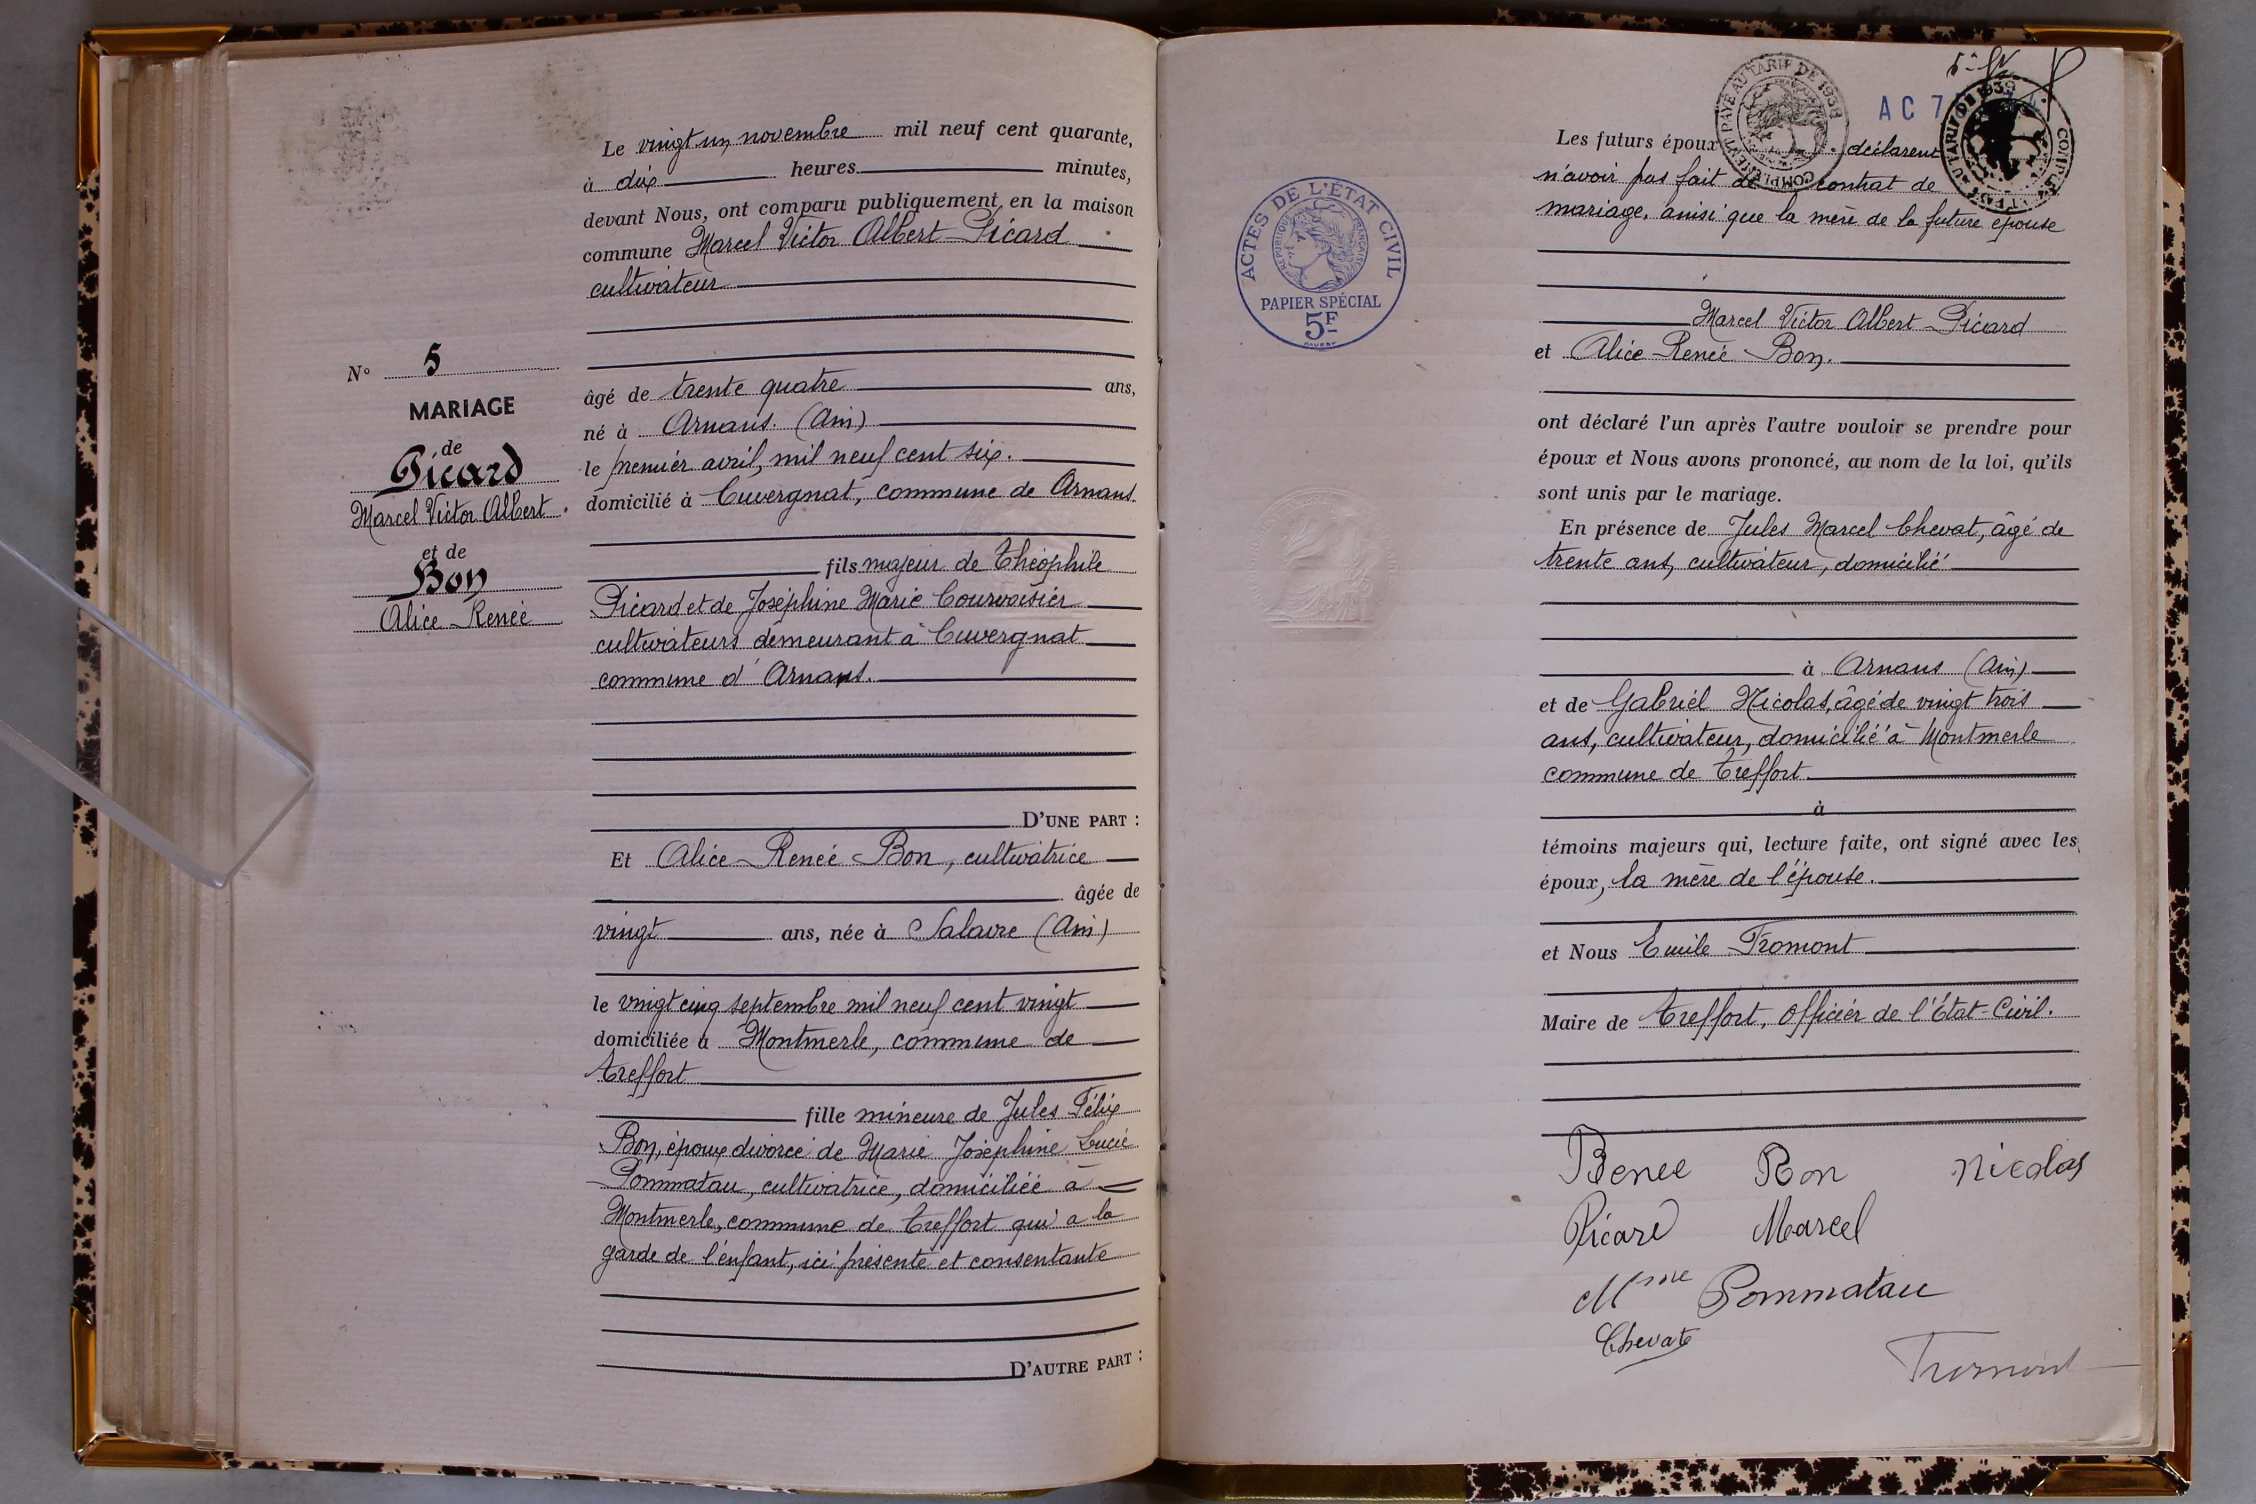 Le vingt un novembre mil neuf cent quarante,
à dix heures minutes,
devant Nous, ont comparu publiquement en la maison
commune Marcel Victor Albert Picard
cultivateur
N° 5
MARIAGE
de
Picard
Marcel Victor Albert.
et de
Bon
Alice Renée
âgé de trente quatre ans,
né à Arnans. (Ain)
le premier avril, mil neuf cent six.
domicilié à Cuvergnat, commune de Arnans
fils majeur de Théophile
Picard et de Joséphine Marie Courvoisier
cultivateurs demeurant à Cuvergnat
commune d'Arnans.
D'UNE PART :
Et Alice Renée Bon, cultivatrice
âgée de
vingt ans, née à Salavre (Ain)
le vingt cinq septembre mil neuf cent vingt
domiciliée à Montmerle, commune de
Treffort
fille mineure de Jules Félix
Bon, époux divorcé de Marie Joséphine Lucie
Pommatau, cultivatrice, domiciliée à
Montmerle, commune de Treffort qui a la
garde de l'enfant, ici présente et consentante
D'AUTRE PART :
COMPLÉMENT PAYÉ AU TARIF DE 1938
AC 7
ACTES DE L'ÉTAT CIVIL
RÉPUBLIQUE FRANÇAISE
PAPIER SPÉCIAL
5F
Les futurs époux déclarent
n'avoir pas fait de contrat de
mariage. ainsi que la mère de la future épouse
Marcel Victor Albert Picard
et Alice Renée Bon.
ont déclaré l'un après l'autre vouloir se prendre pour
époux et Nous avons prononcé, au nom de la loi, qu'ils
sont unis par le mariage.
En présence de Jules Marcel Chevat, âgé de
trente ans, cultivateur, domicilié
à Arnans (Ain)
et de Gabriel Nicolas, âgé de vingt trois
ans, cultivateur, domicilié à Montmerle
commune de Treffort
à
témoins majeurs qui, lecture faite, ont signé avec les
époux, la mère de l'épouse.
et Nous Emile Fromont
Maire de Treffort, Officier de l'État-Civil.
Renee Bon Nicolas
Picard Marcel
Mme Pommatau
Chevat
Fromont